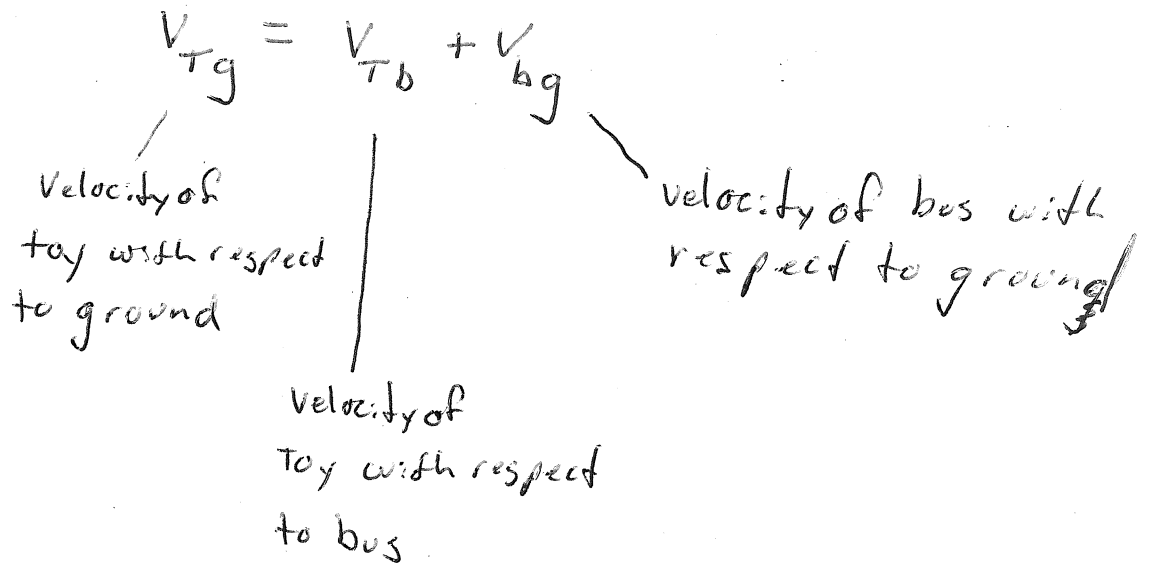 V_Tg = V_Tb + V_bg
Velocity of
toy with respect
to ground
velocity of bus with
respect to ground
Velocity of
Toy with respect
to bus